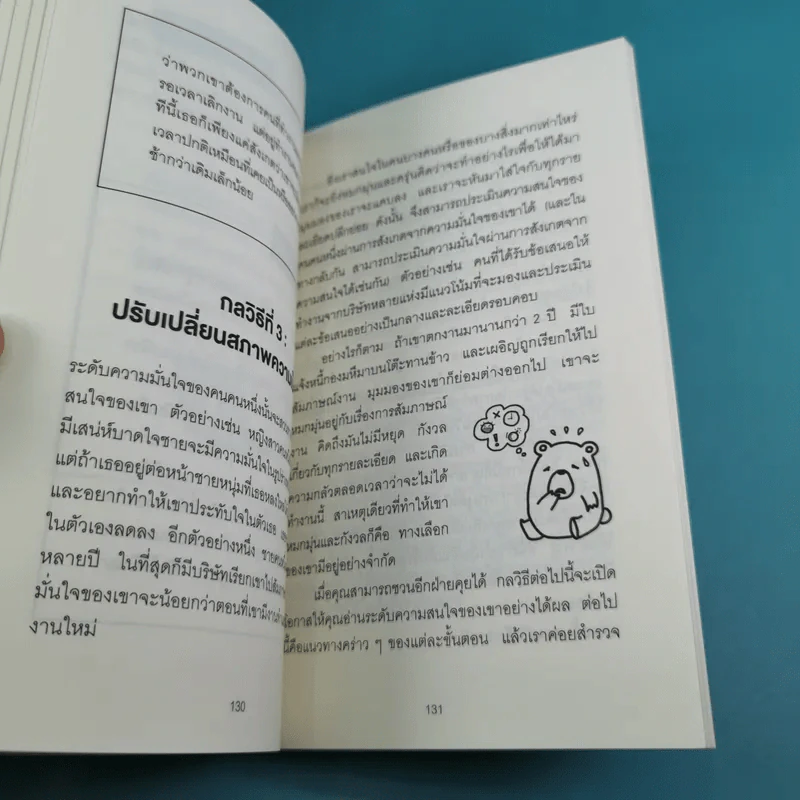 ว่าพวกเขาต้องการคนที่
รอเวลาเลิกงาน แต่อยู่ทำงาน
ทีนี้เธอก็เพียงแต่สังเกตว่า
เวลาปกติเหมือนที่เคยเป็นหรือ
ช้ากว่าเดิมเล็กน้อย
กลวิธีที่ 3 :
ปรับเปลี่ยนสภาพความ
ระดับความมั่นใจของคนคนหนึ่งนั้นจะ
สนใจของเขา ตัวอย่างเช่น หญิงสาวคน
มีเสน่ห์บาดใจชายจะมีความมั่นใจใน
แต่ถ้าเธออยู่ต่อหน้าชายหนุ่มที่เธอหลง
และอยากทำให้เขาประทับใจในตัวเธอ
ในตัวเองลดลง อีกตัวอย่างหนึ่ง ชาย
หลายปี ในที่สุดก็มีบริษัทเรียกเขาไป
มั่นใจของเขาจะน้อยกว่าตอนที่เขามีงาน
งานใหม่
130
ยิ่งเราสนใจในคนบางคนหรือของบางสิ่งมากเท่าไหร่
เราก็จะยิ่งหมกมุ่นและครุ่นคิดว่าจะทำอย่างไรเพื่อให้ได้มา
มุมมองของเราจะแคบลง และเราจะหันมาใส่ใจกับทุกราย
ละเอียดปลีกย่อย ดังนั้น จึงสามารถประเมินความสนใจของ
คนคนหนึ่งผ่านการสังเกตจากความมั่นใจของเขาได้ (และใน
ทางกลับกัน สามารถประเมินความมั่นใจผ่านการสังเกตจาก
ความสนใจได้เช่นกัน) ตัวอย่างเช่น คนที่ได้รับข้อเสนอให้
ทำงานจากบริษัทหลายแห่งมีแนวโน้มที่จะมองและประเมิน
แต่ละข้อเสนออย่างเป็นกลางและละเอียดรอบคอบ
อย่างไรก็ตาม ถ้าเขาตกงานมานานกว่า 2 ปี มีใบ
แจ้งหนี้กองมหึมาบนโต๊ะทานข้าว และเผอิญถูกเรียกให้ไป
สัมภาษณ์งาน มุมมองของเขาก็ย่อมต่างออกไป เขาจะ
หมกมุ่นอยู่กับเรื่องการสัมภาษณ์
งาน คิดถึงมันไม่มีหยุด กังวล
เกี่ยวกับทุกรายละเอียด และเกิด
ความกลัวตลอดเวลาว่าจะไม่ได้
ทำงานนี้ สาเหตุเดียวที่ทำให้เขา
หมกมุ่นและกังวลก็คือ ทางเลือก
ของเขามีอยู่อย่างจำกัด
เมื่อคุณสามารถชวนอีกฝ่ายคุยได้ กลวิธีต่อไปนี้จะเปิด
โอกาสให้คุณอ่านระดับความสนใจของเขาอย่างได้ผล ต่อไป
นี้คือแนวทางคร่าว ๆ ของแต่ละขั้นตอน แล้วเราค่อยสำรวจ
131